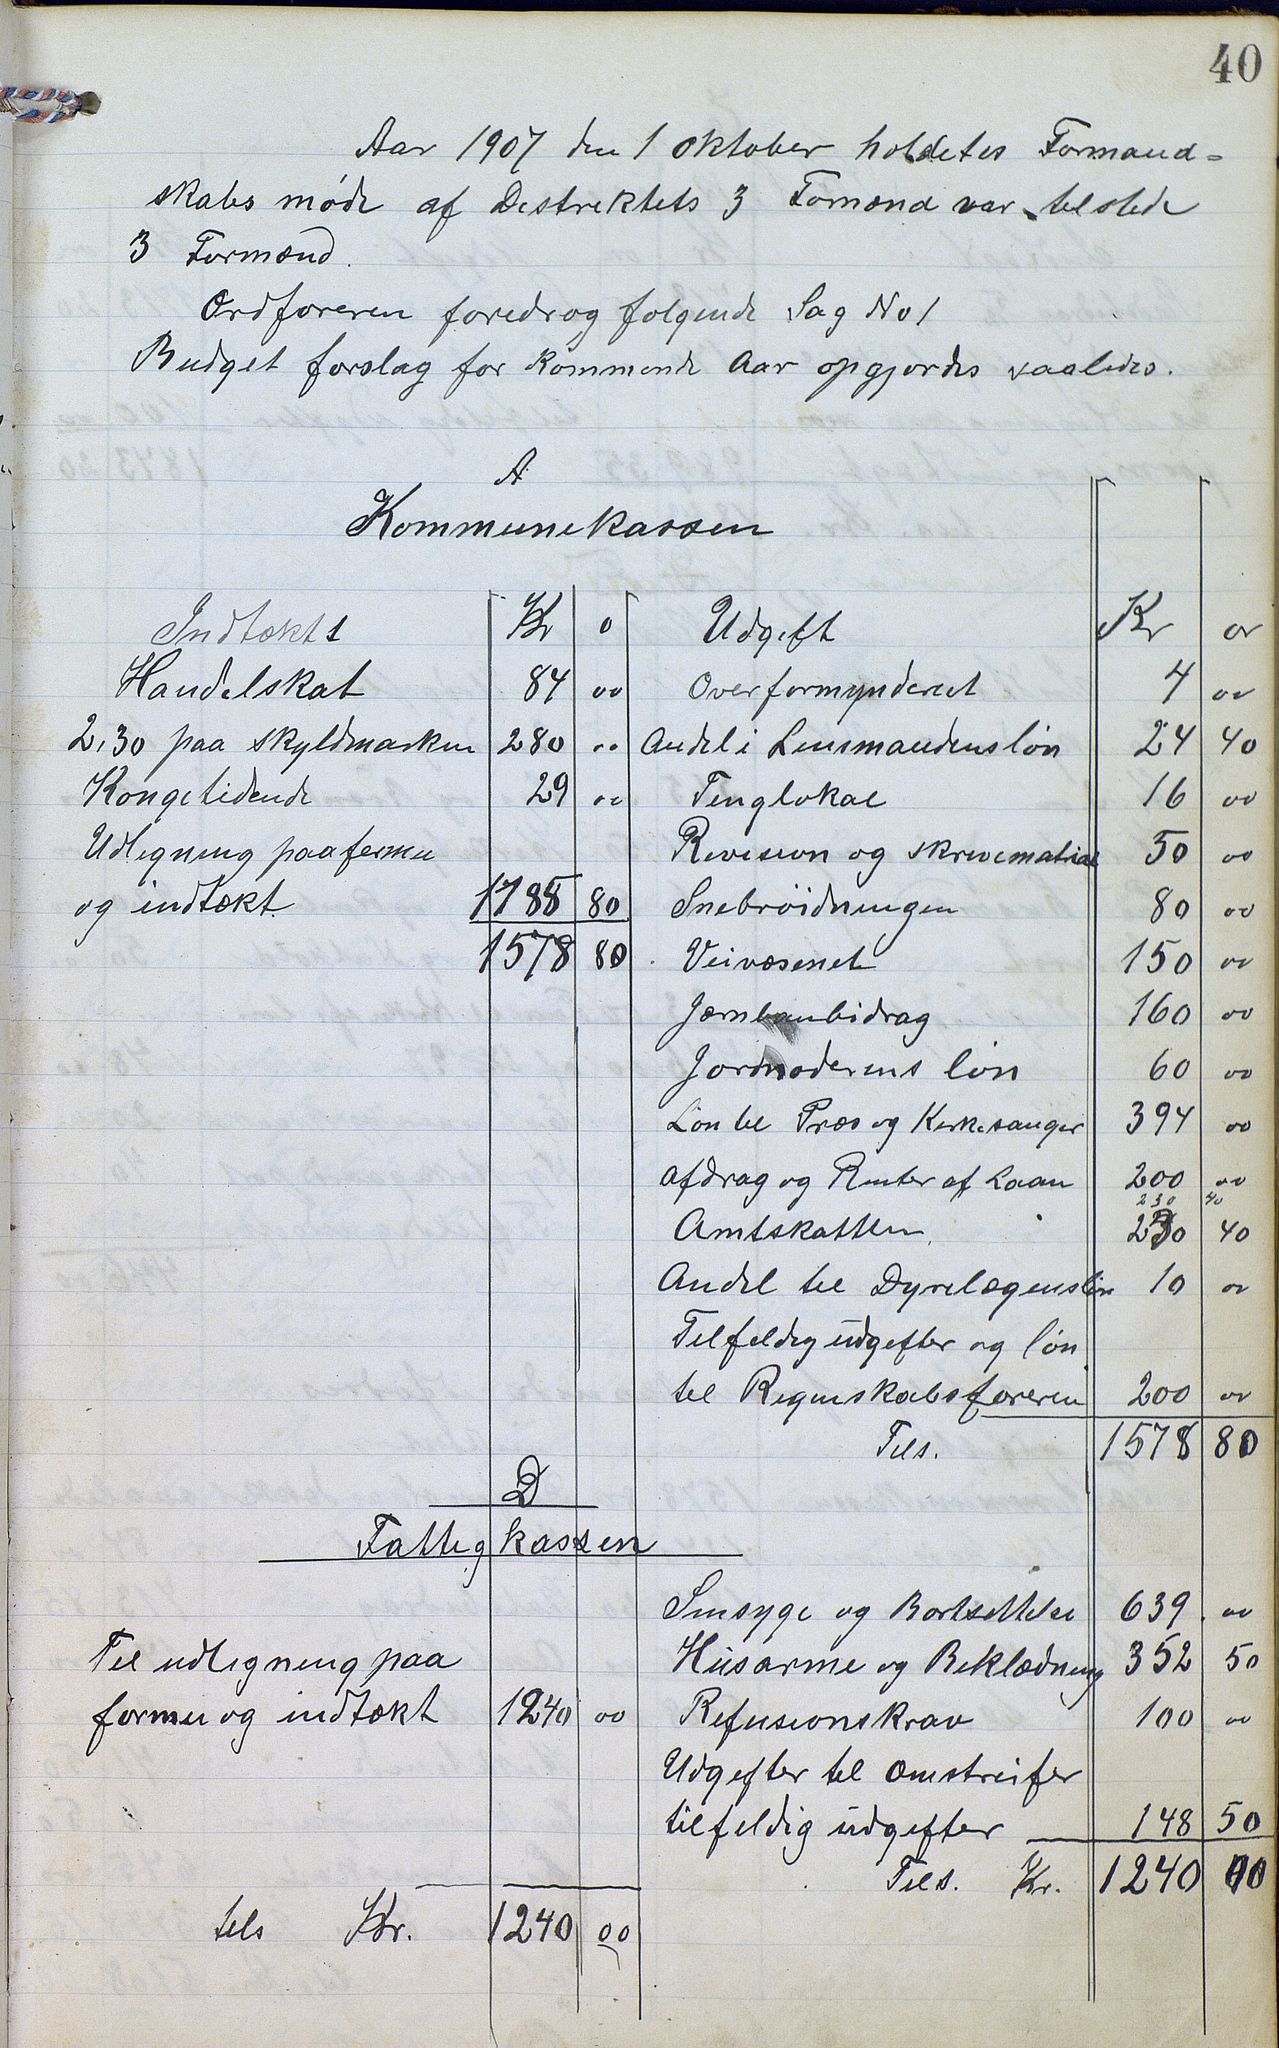 40
Aar 1907 den 1 Oktober holdetes Formand=
skabs møde af Destrektets 3 Formænd var telstede
3 Formænd.
Ordføreren foredrog følgende Sag No 1
Budget forslag for kommende Aar opgjordes saaledes.
A
Kommunekassen
Indtækt Kr o Udgift Kr ør
Handelskat 84 00 Overformynderiet 4 00
2,30 paa skyldmarken 280 00 Andel i Lensmandensløn 24 40
Kongetidende 29 00 Tinglokal 16 00
Udligning paa formu Revision og skrivematrial 50 00
og indtækt 1185 80 Snebröidningen 80 00
1578 80 Veivæsenet 150 00
Jærnbanbidrag 160 00
Jordmoderens løn 60 00
Løn til Præs og Kirkesanger 394 00
Afdrag og Renter af Laan 200 00
230 40
Amtskatten 230 40
Andel til Dyrelægensløn 10 00
Tilfeldig udgifter og løn
tel Regnskabsføreren 200 00
Tils. 1578 80
D
Fattigkassen
Sinsyge og Bortsettelse 639 00
Til udligning paa Husarme og Beklædning 352 50
formu og indtækt 1240 00 Refusionskrav 100 00
Udgifter til omstreifer
tilfeldig udgifter 148 50
Tils. Kr. 1240 00
tels Kr. 1240 00